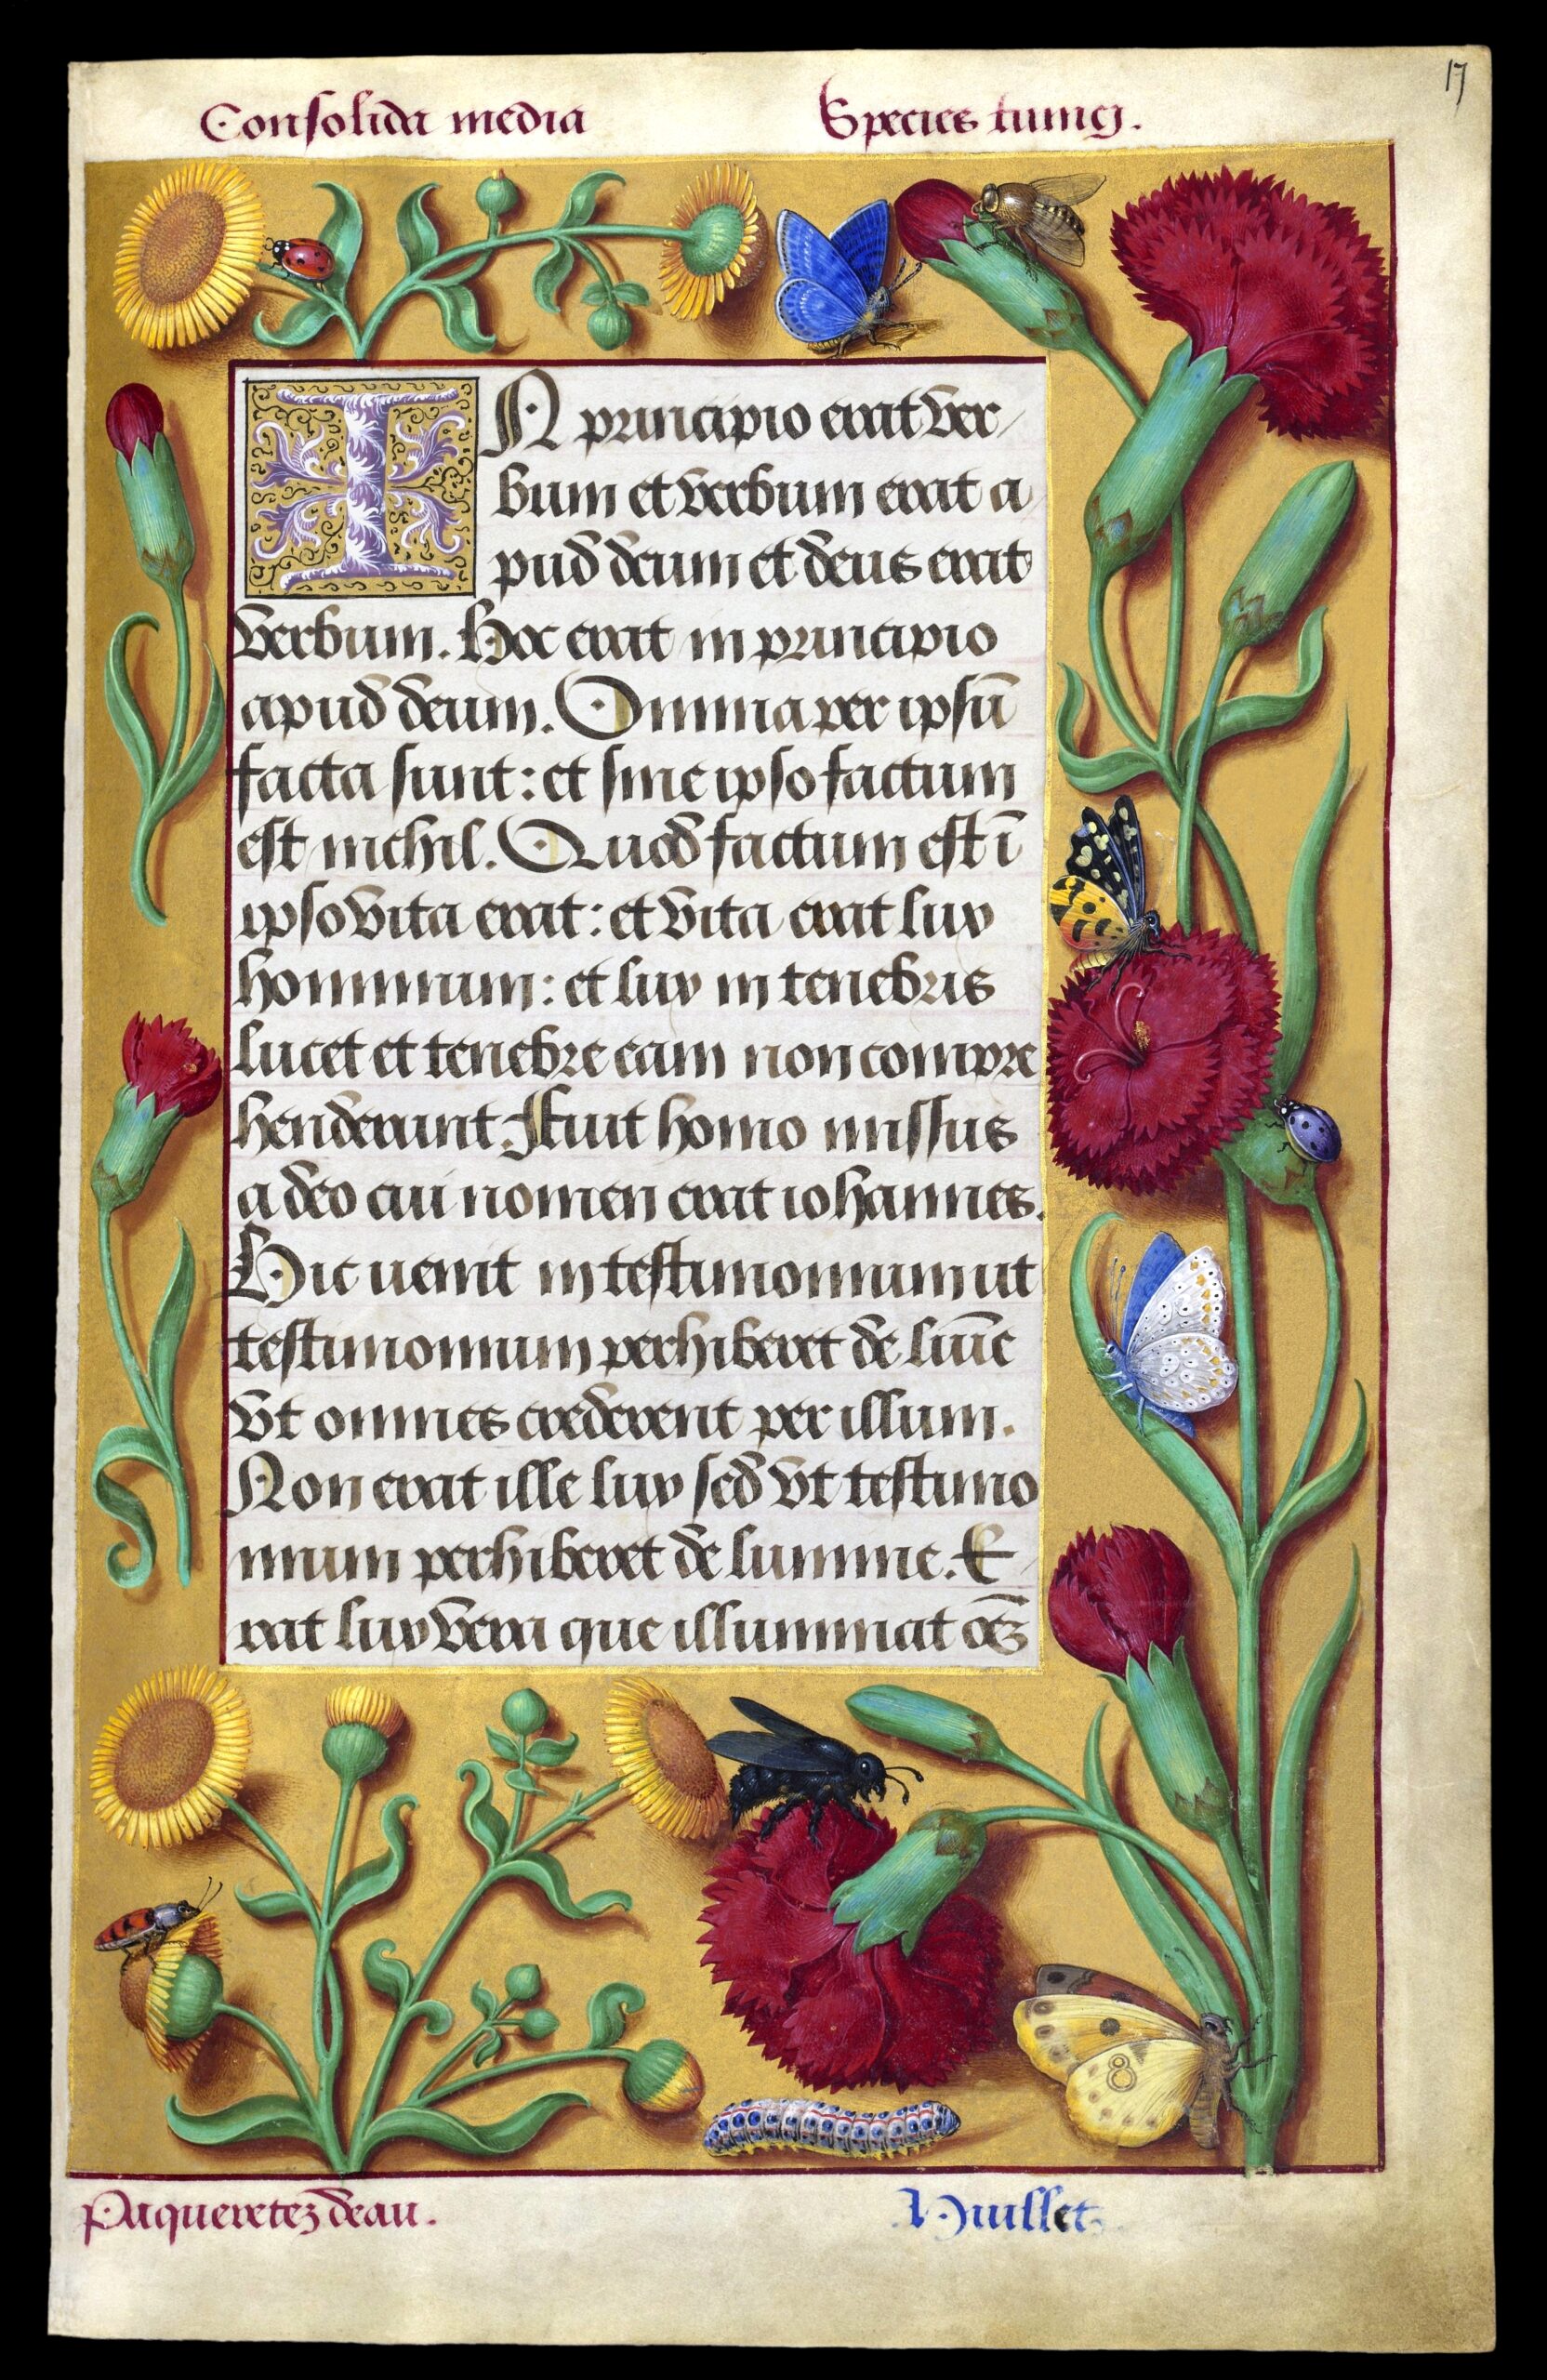 17
Consolida media
Species tunici.
IN principio erat ver
bum et verbum erat a
pud deum et deus erat
verbum. Hoc erat in principio
apud deum. Omnia per ipsū
facta sunt: et sine ipso factum
est nichil. Quod factum est ī
ipso vita erat: et vita erat lux
hominum: et lux in tenebris
lucet et tenebre eam non compre
henderunt. Fuit homo missus
a deo cui nomen erat iohannes.
Hic uenit in testimonium ut
testimonium perhiberet de lumīe
Vt omnes crederent per illum.
Non erat ille lux sed vt testimo
nium perhiberet de lumine. E
rat lux vera que illuminat oēz
Paqueretez deau.